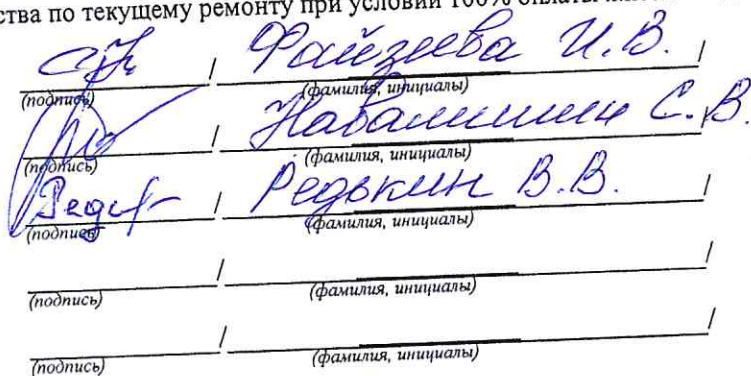 ства по текущему ремонту при условии 100% оплаты
/ Файзиева И.В. /
(подпись) (фамилия, инициалы)
/ Навалишин С.В.
(подпись) (фамилия, инициалы)
/ Редькин В.В. /
(подпись) (фамилия, инициалы)
/ /
(подпись) (фамилия, инициалы)
/ /
(подпись) (фамилия, инициалы)